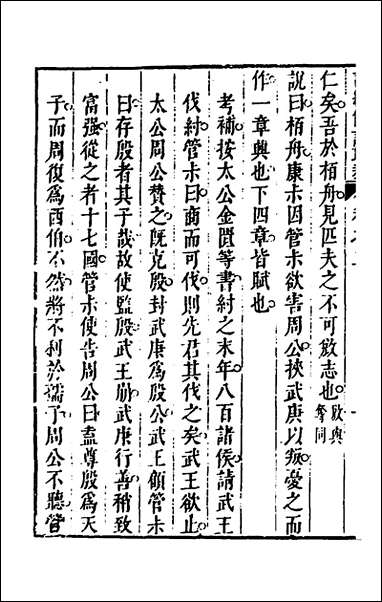 仁矣吾於栢舟見匹夫之不可敓志也敓與奪同
說曰栢舟康未因管未欲害周公挾武庚以叛憂之而
作一章興也下四章皆賦也
考補按太公金匱等書紂之末年八百諸侯請武王
伐紂管未曰商而可伐則先君其伐之矣武王欲止
太公周公贊之旣克殷封武康爲殷公武王顧管未
曰存殷者其子哉故使監殷武王崩武庚行善稍致
富强從之者十七國管未使告周公曰盍尊殷爲天
子而周復爲西伯不然將不利於孺子周公不聽管